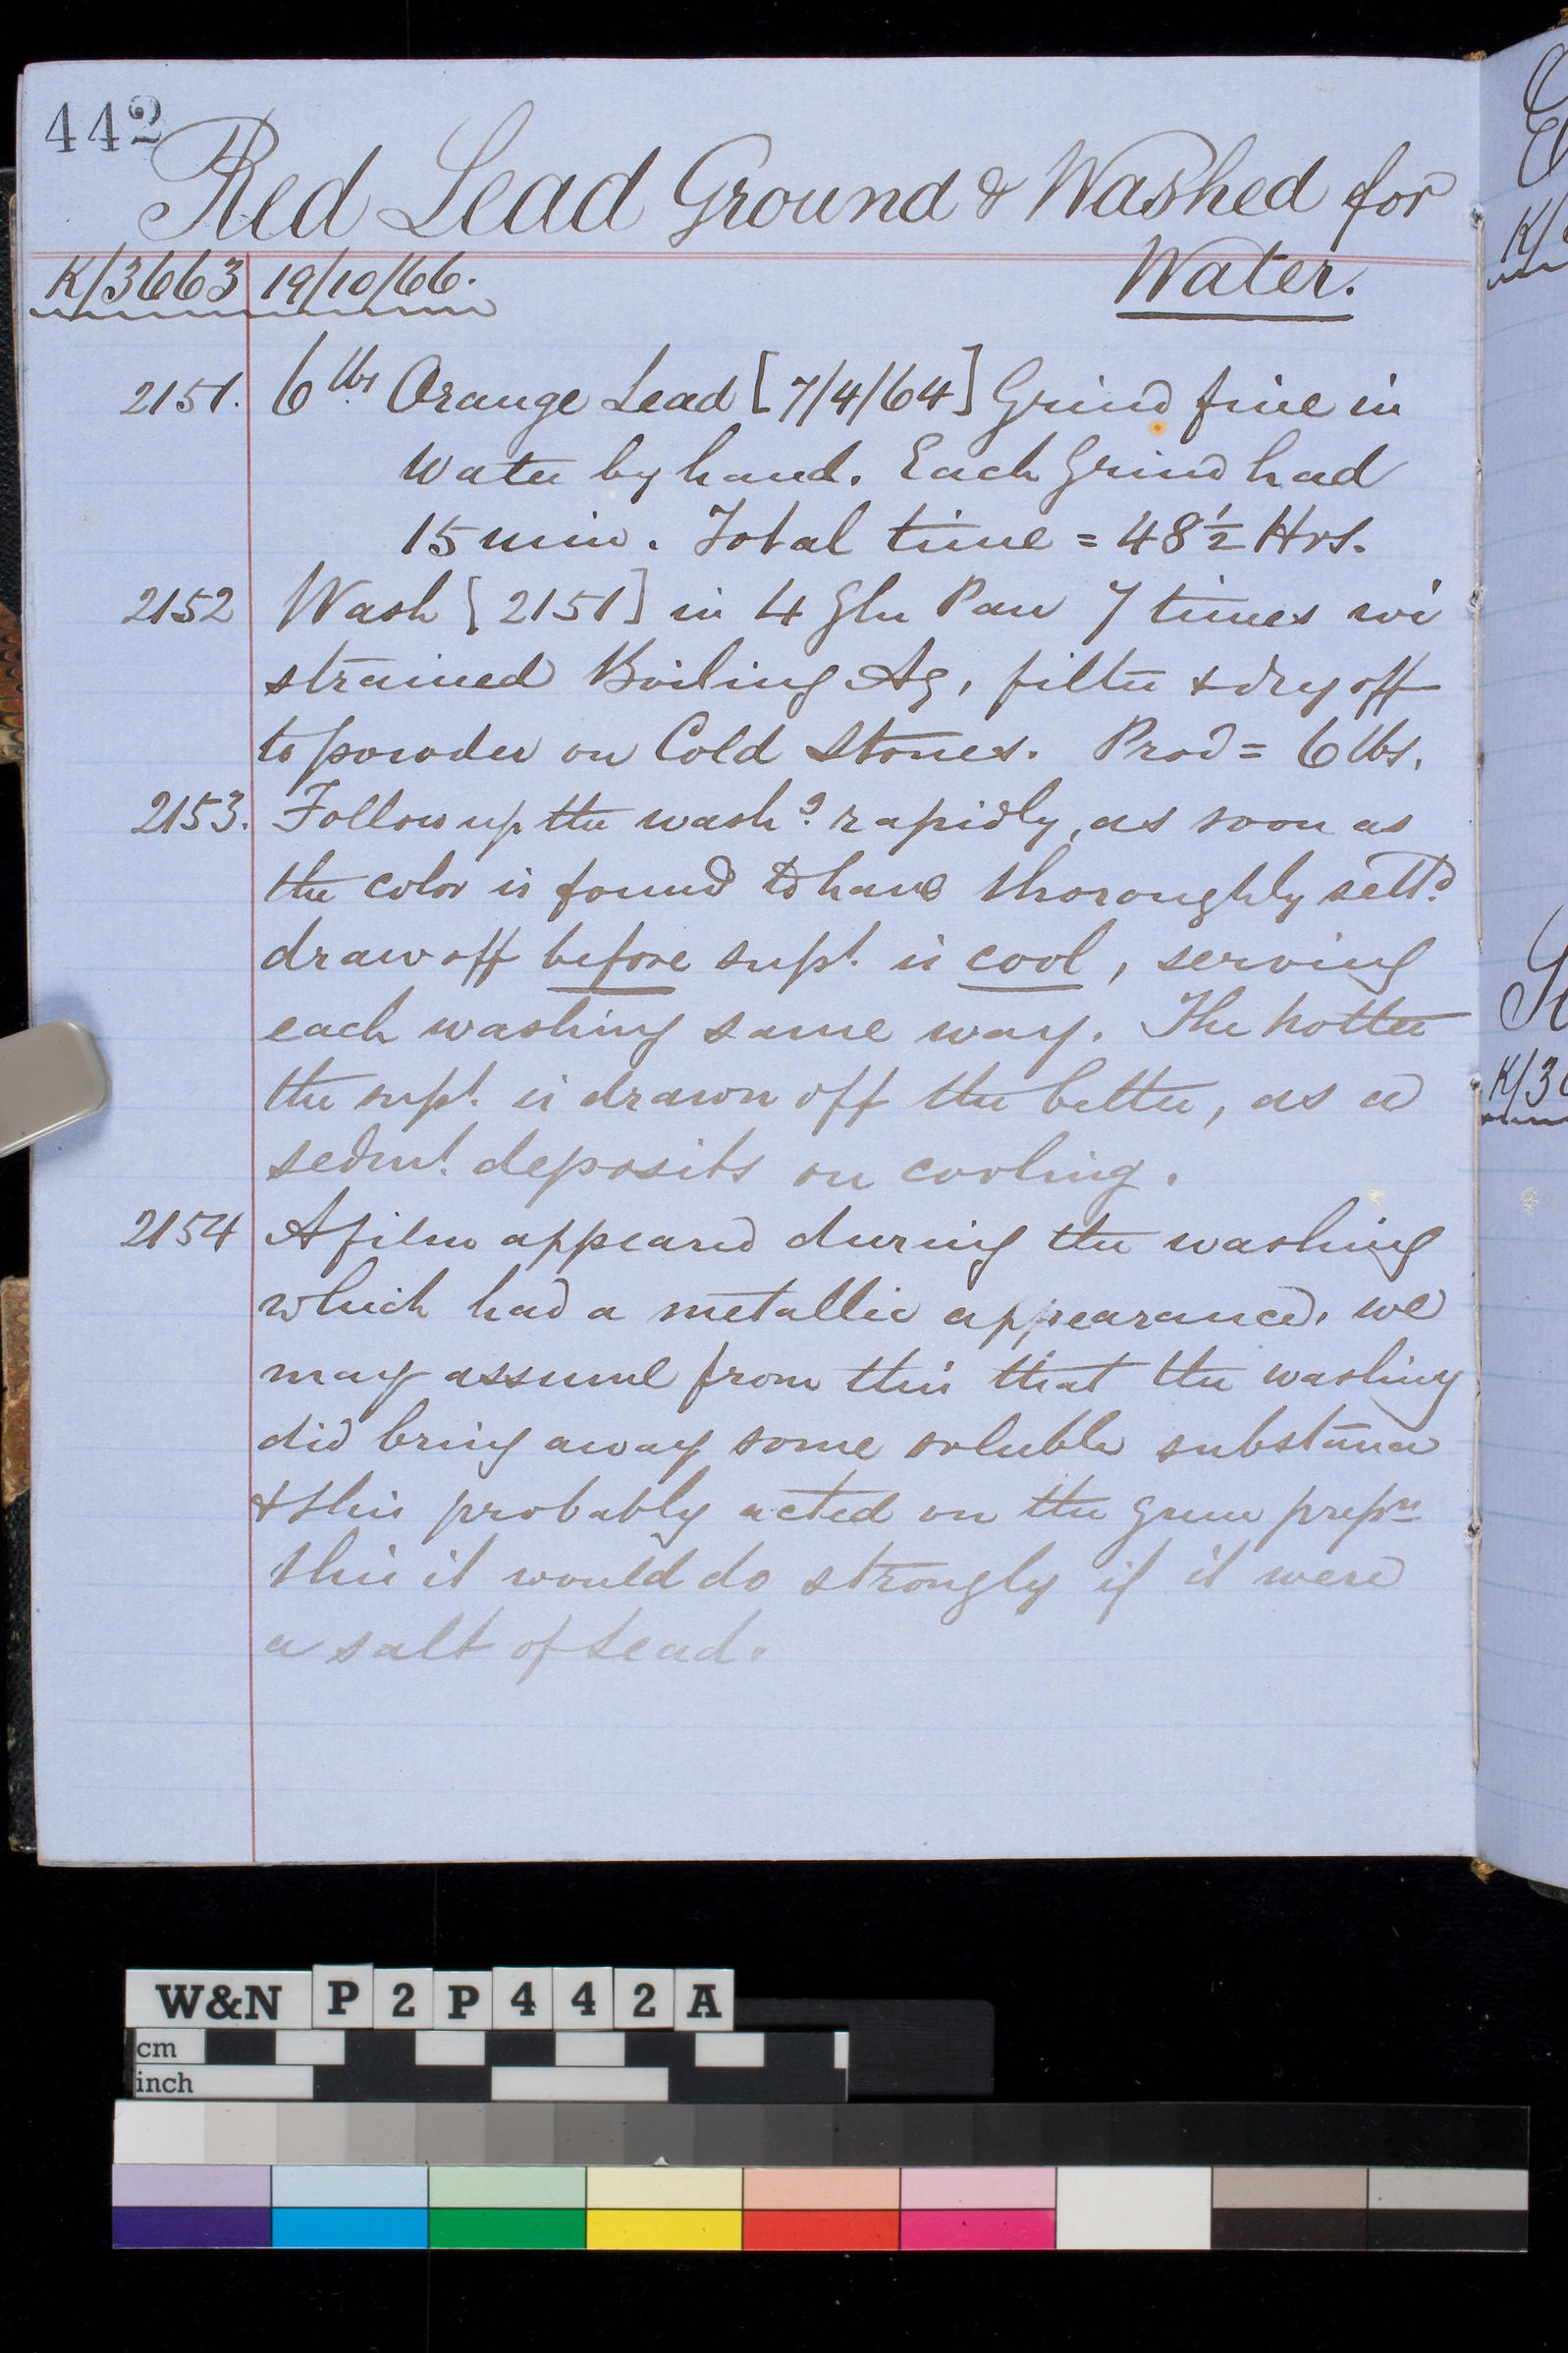 442
Red Lead Ground & Washed for
Water.
K/3663 19/10/66.
2151. 6 lbs Orange Lead [7/4/64] Grind fine in
Water by hand. Each Grind had
15 min. Total time = 48½ Hrs.
2152 Wash [2151] in 4 Gln Pan 7 times wi
strained Boiling Aq, filter & dry off
to powder on Cold Stones. Prod = 6 lbs.
2153. Follow up the washg rapidly, as soon as
the color is found to have thoroughly settd
draw off before supt. is cool, serving
each washing same way. The hotter
the supt. is drawn off the better, as a
sedmt. deposits on cooling.
2154 A film appeared during the washing
which had a metallic appearance, we
may assume from this that the washing
did bring away some soluble substance
& this probably acted on the gum prepn
this it would do strongly if it were
a salt of Lead.
K/3
W&N P2P442A
cm
inch